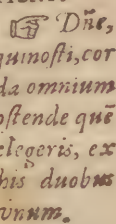 ☞ Dñe,
quinosti, cor
da omnium
ostende quē
elegeris, ex
his duobus
vnum.